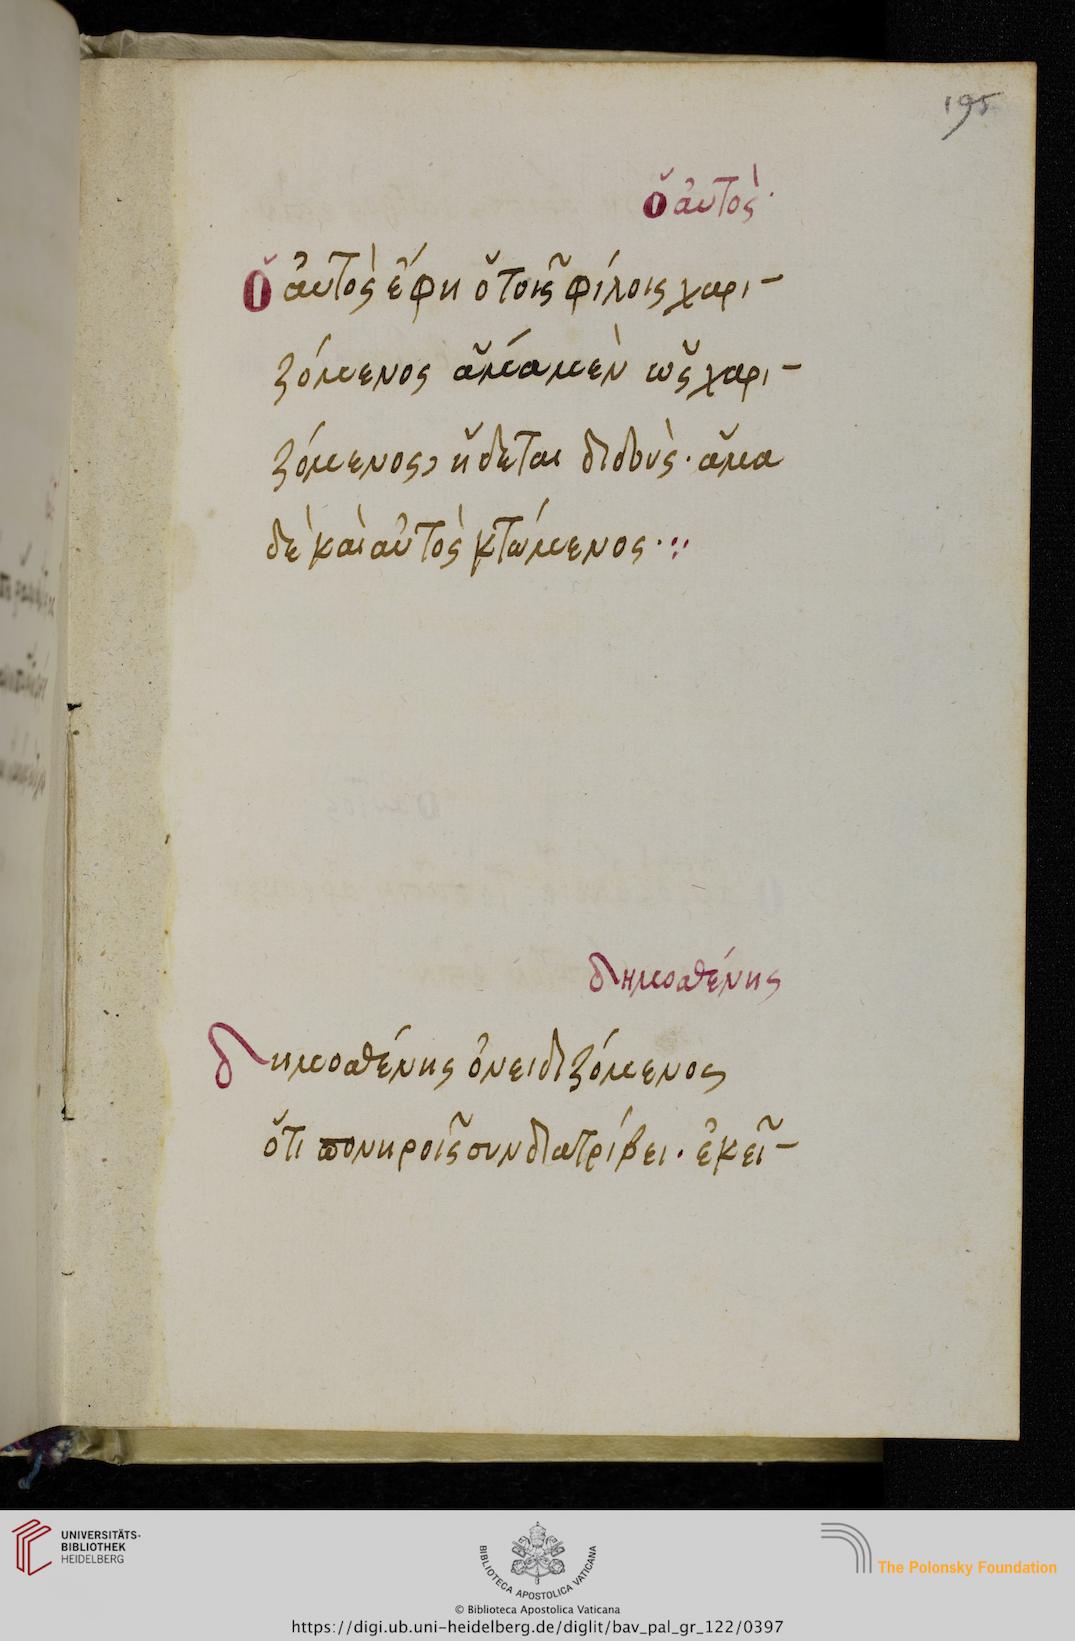 195
ὁ αὐτὸς·
Ὁ αὐτὸς ἔφη ὁ τοῖς φίλοις χαρι-
ζόμενος ἅμα μὲν ὡς χαρι-
ζόμενος, ἥδεται διδοὺς· ἅμα
δὲ καὶ αὐτὸς κτώμενος·:
δημοσθένης
δημοσθένης ὀνειδιζόμενος
ὅτι πονηροῖς συνδιατρίβει· ἐκεῖ-
UNIVERSITÄTS-
BIBLIOTHEK
HEIDELBERG
BIBLIOTECA APOSTOLICA VATICANA
The Polonsky Foundation
© Biblioteca Apostolica Vaticana
https://digi.ub.uni-heidelberg.de/diglit/bav_pal_gr_122/0397